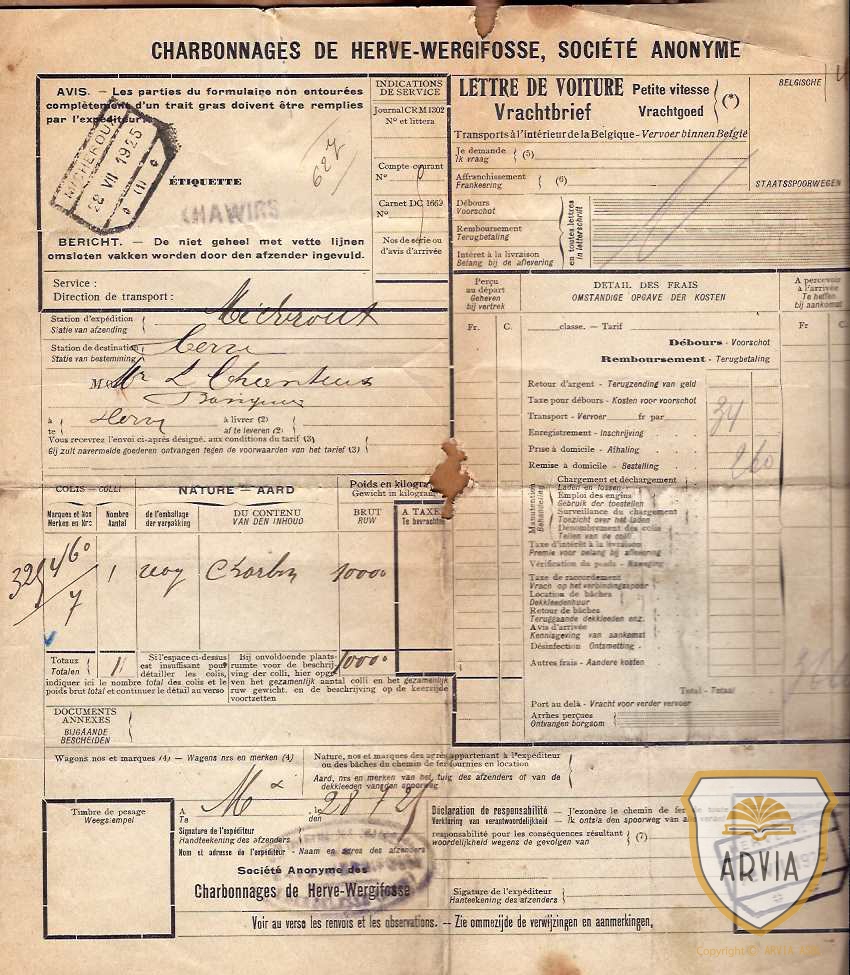 CHARBONNAGES DE HERVE-WERGIFOSSE, SOCIÉTÉ ANONYME
AVIS. — Les parties du formulaire non entourées
complètement d'un trait gras doivent être remplies
par l'expéditeur.
MICHEROUX
28 VII 1925
ÉTIQUETTE
627
CHAWIRS
BERICHT. — De niet geheel met vette lijnen
omsloten vakken worden door den afzender ingevuld.
Service :
Direction de transport :
INDICATIONS
DE SERVICE
Journal CRM 1302
No et littera
Compte-courant
No
Carnet DC 1669
No
Nos de série ou
d'avis d'arrivée
LETTRE DE VOITURE Petite vitesse (*)
Vrachtbrief Vrachtgoed
BELGISCHE
STAATSSPOORWEGEN
Transports à l'intérieur de la Belgique - Vervoer binnen België
Je demande (5)
Ik vraag
Affranchissement (6)
Frankeering
Débours
Voorschot
Remboursement
Terugbetaling
Intérêt à la livraison
Belang bij de aflevering
en toutes lettres
in letterschrift
Station d'expédition Micheroux
Statie van afzending
Station de destination Herve
Statie van bestemming
M Mr L Chanteux
Banquier
à Herve à livrer (2)
te af te leveren (2)
Vous recevrez l'envoi ci-après désigné, aux conditions du tarif (3)
Gij zult narermelde goederen ontvangen tegen de voorwaarden van het tarief (3)
Perçu
au départ
Geheven
bij vertrek
DETAIL DES FRAIS
OMSTANDIGE OPGAVE DER KOSTEN
A percevoir
à l'arrivée
Te heffen
bij aankomst
Fr. C. classe. — Tarif Fr C
Débours - Voorschot
Remboursement - Terugbetaling
Retour d'argent - Terugzending van geld
Taxe pour débours - Kosten voor voorschot
Transport - Vervoer fr par 34
Enregistrement - Inschrijving
Prise à domicile - Afhaling
260
Remise à domicile - Bestelling
Manutention
Behandeling
Chargement et déchargement
Laden en lossen
Emploi des engins
Gebruik der toestellen
Surveillance du chargement
Toezicht over het laden
Dénombrement des colis
Tellen van de colli
Taxe d'intérêt à la livraison
Premie voor belang bij aflevering
Vérification du poids - Naweging
Taxe de raccordement
Vracht op het verbindingsspoor
Location de bâches
Dekkleedenhuur
Retour de bâches
Teruggaande dekkleeden enz.
Avis d'arrivée
Kennisgeving van aankomst
Désinfection Ontsmetting
Autres frais - Aandere kosten
Total - Totaal
Port au delà - Vracht voor verder vervoer
Arrhes perçues
Ontvangen borgsom
COLIS — COLLI
NATURE - AARD
Poids en kilogr
Gewicht in kilogram
Marques et Nos
Merken en Nrs
Nombre
Aantal
de l'emballage
der verpakking
DU CONTENU
VAN DEN INHOUD
BRUT
RUW
A TAXER
Te bevrachten
32 5460 / 7 1 wag Charbon 10000
Totaux
Totalen
1 10000
Si l'espace ci-dessus
est insuffisant pour
détailler les colis,
indiquer ici le nombre total des colis et le
poids brut total et continuer le détail au verso
Bij onvoldoende plaats-
ruimte voor de beschrij-
ving der colli, hier opge-
ven het gezamenlijk aantal colli en het gezamenlijk
ruw gewicht. en de beschrijving op de keerzijde
voortzetten
DOCUMENTS
ANNEXES
BIJGAANDE
BESCHEIDEN
Wagons nos et marques (4) - Wagens nrs en merken (4)
Nature, nos et marques des agrès appartenant à l'expéditeur
ou des bâches du chemin de fer fournies en location
Aard, nrs en merken van het tuig des afzenders of van de
dekkleeden van den spoorweg
Timbre de pesage
Weegstempel
A Mx le 28-7-25
Te den
Signature de l'expéditeur
Handteekening des afzenders
Nom et adresse de l'expéditeur - Naam en adres des afzenders
Société Anonyme des
Charbonnages de Herve-Wergifosse
Déclaration de responsabilité - J'exonère le chemin de fer de toute
Verklaring van verantwoordelijkheid - Ik ontsla den spoorweg van alle
responsabilité pour les conséquences résultant
woordelijkheid wegens de gevolgen van (7)
Signature de l'expéditeur
Hanteekening des afzenders
Voir au verso les renvois et les observations. — Zie ommezijde de verwijzingen en aanmerkingen,
ARVIA